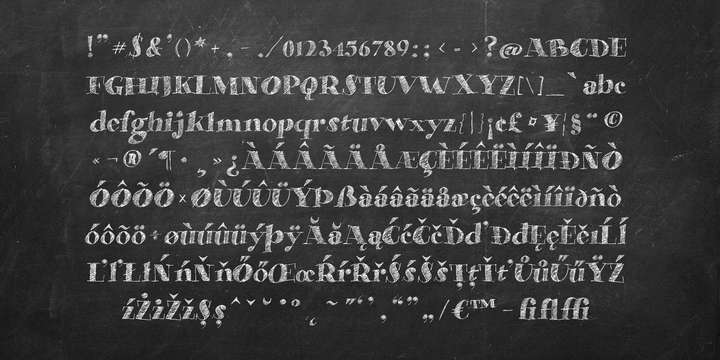 !”#$&'()*+,-./0123456789:;‹-›?@ABCDE
FGHIJKLMNOPQRSTUVWXYZ[\]_`abc
defghijklmnopqrstuvwxyz{|}¡¢£¤¥¦§¨©
«¬®´¶·¸»¿ÀÁÂÃÄÅÆÇÈÉÊËÌÍÎÏÐÑÒ
ÓÔÕÖ×ØÙÚÛÜÝÞßàáâãäåæçèéêëìíîïðñò
óôõö÷øùúûüýþÿĂăĄąĆćČčĎďĐđĘęĚěıĹĺ
ĽľŁłŃńŇňŐőŒœŔŕŘřŚśŠšŢţŤťŮůŰűŸŹ
źŻżŽžȘșˆˇ˘˙˚˛˜˝“‘’‚“”„⁄€™−fiflffi